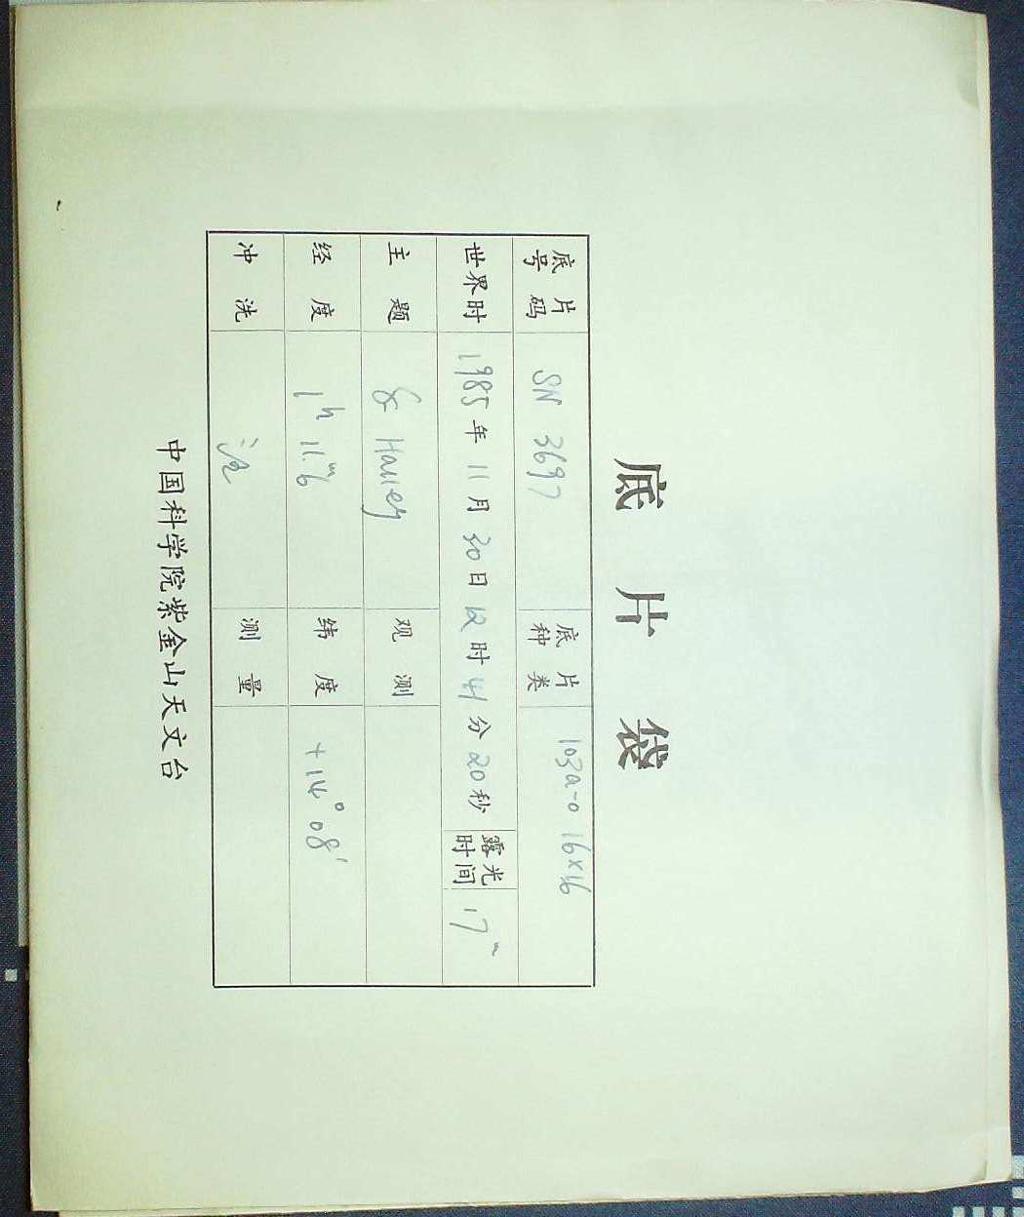 底 片 袋
底片号码 SN 3697 底片种类 103a-0 16×16
世界时 1985年 11月 30日 12时 41分 20秒 露光时间 17m
主题 & Halley 观测
经度 1h 11.m6 纬度 +14° 08′
冲洗 测量
中国科学院紫金山天文台